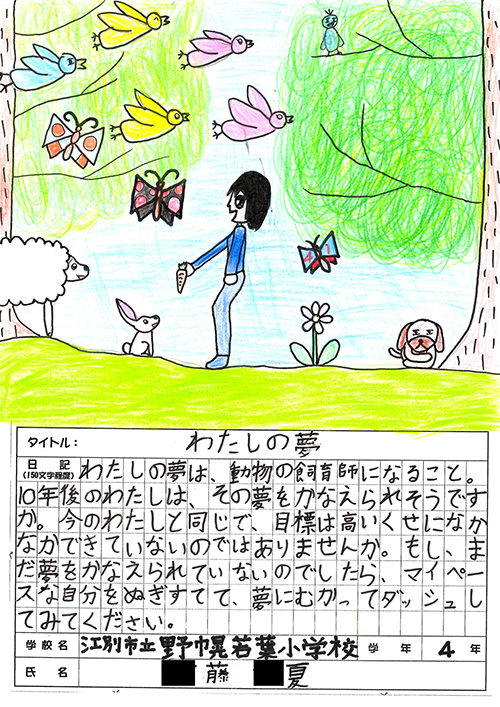 タイトル： わたしの夢
日記 (150文字程度)
わたしの夢は、動物の飼育師になること。
10年後のわたしは、その夢をかなえられそうです
か。今のわたしと同じで、目標は高いくせになか
なかできていないのではありませんか。もし、ま
だ夢をかなえられていないのでしたら、マイペー
スな自分をぬぎすてて、夢にむかってダッシュし
てみてください。
学校名 江別市立野幌若葉小学校 学年 4年
氏名 藤 夏
4 1